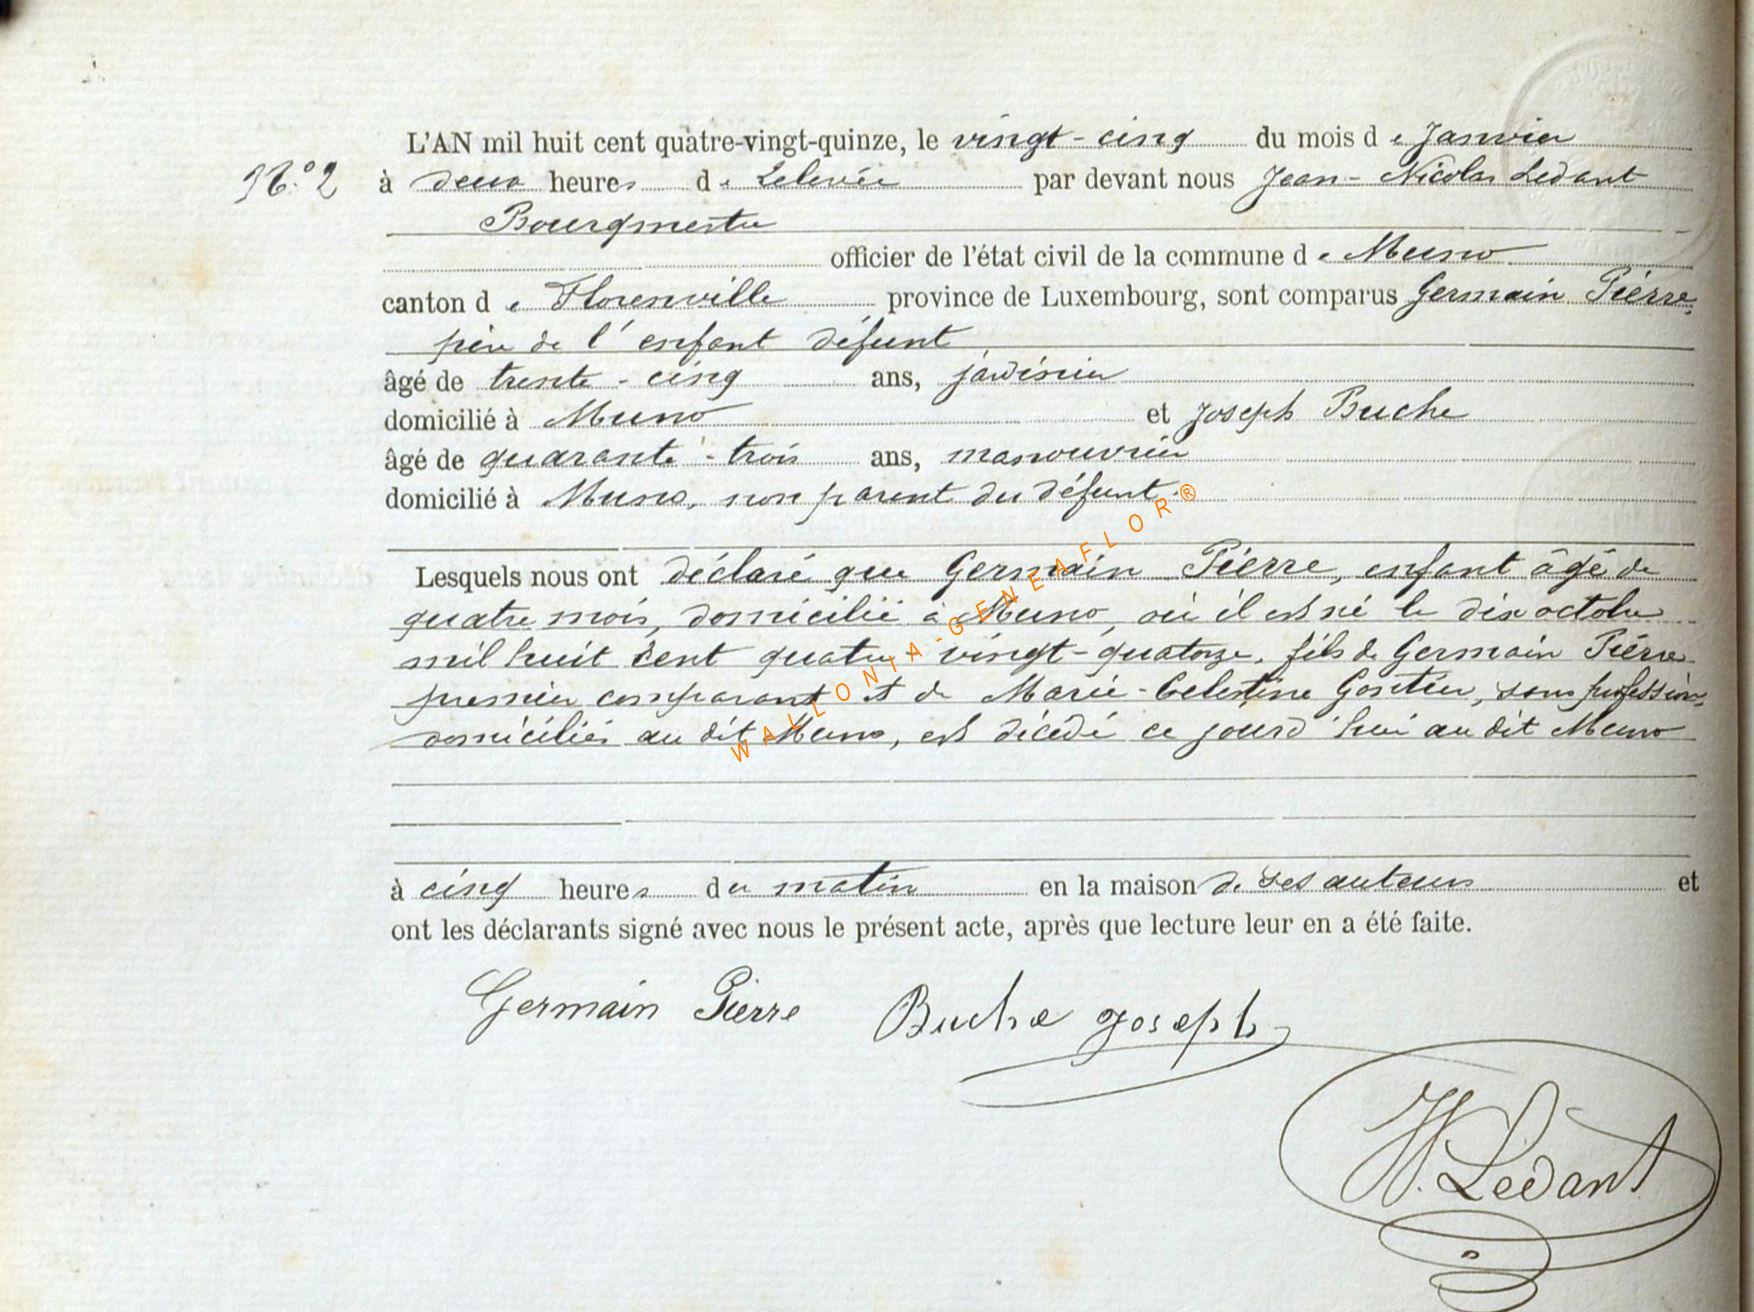 L'AN mil huit cent quatre-vingt-quinze, le vingt-cinq du mois de Janvier
N.° 2 à deux heures de Relevée par devant nous Jean-Nicolas Ledant
Bourgmestre
officier de l'état civil de la commune de Muno
canton de Florenville province de Luxembourg, sont comparus Germain Pierre,
père de l'enfant défunt
âgé de trente-cinq ans, jardinier
domicilié à Muno et Joseph Buche
âgé de quarante-trois ans, manouvrier
domicilié à Muno, non parent du défunt.
Lesquels nous ont déclaré que Germain Pierre, enfant âgé de
quatre mois, domicilié à Muno, où il est né le dix octobre
mil huit cent quatre-vingt-quatorze, fils de Germain Pierre
premier comparant et de Marie-Celestine Gontier, sans profession,
domiciliés au dit Muno, est décédé ce jourd'hui au dit Muno
à cinq heures du matin en la maison de ses auteurs et
ont les déclarants signé avec nous le présent acte, après que lecture leur en a été faite.
Germain Pierre Buche Joseph
N. Ledant
WALLONIA-GENEAFLOR®